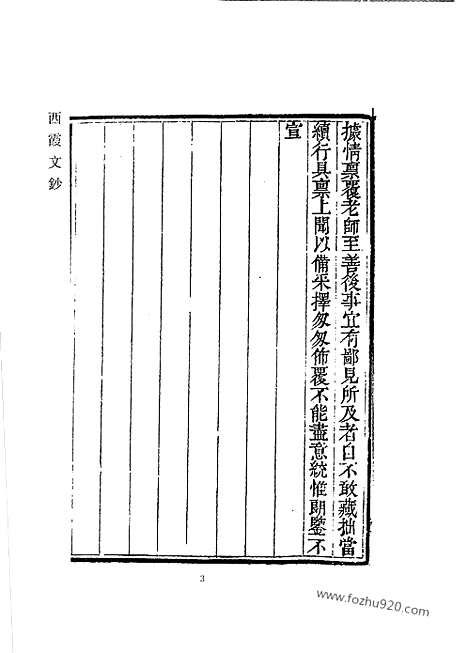 據情禀覆老師至善後事宜有鄙見所及者自不敢藏拙當
續行具禀上聞以備采擇匆匆佈覆不能盡意統惟朗鑒不
宣
西霞文鈔
3
www.fozhu920.com